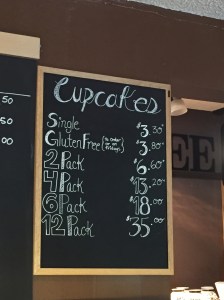 Cupcakes
Single $3.30
Gluten Free (to order or on fridays) $3.80
2 Pack $6.60
4 Pack $13.20
6 Pack $18.00
12 Pack $35.00
50
50
EE